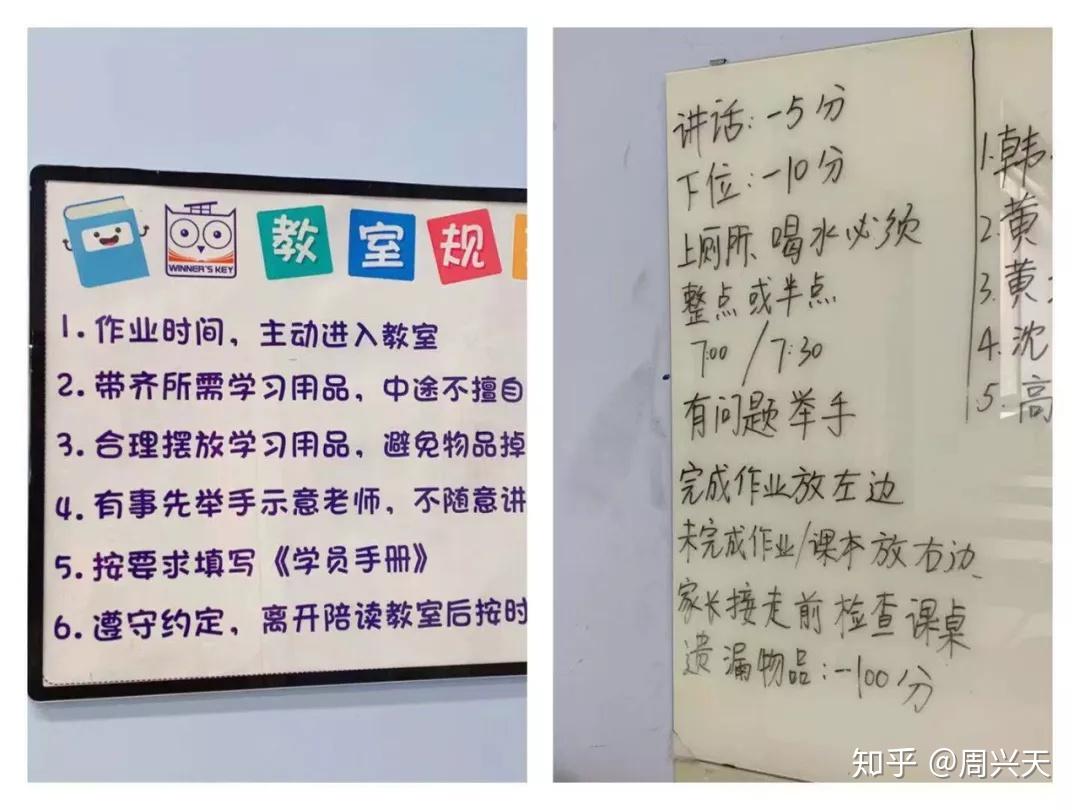 WINNER'S KEY
教室规
1.作业时间，主动进入教室
2.带齐所需学习用品，中途不擅自
3.合理摆放学习用品，避免物品掉
4.有事先举手示意老师，不随意讲
5.按要求填写《学员手册》
6.遵守约定，离开陪读教室后按时
讲话：-5分
下位：-10分
上厕所、喝水必须
整点或半点
7:00 / 7:30
有问题举手
完成作业放左边
未完成作业/课本放右边
家长接走前检查课桌
遗漏物品：-100分
1.韩
2.黄
3.黄
4.沈
5.高
知乎 @周兴天